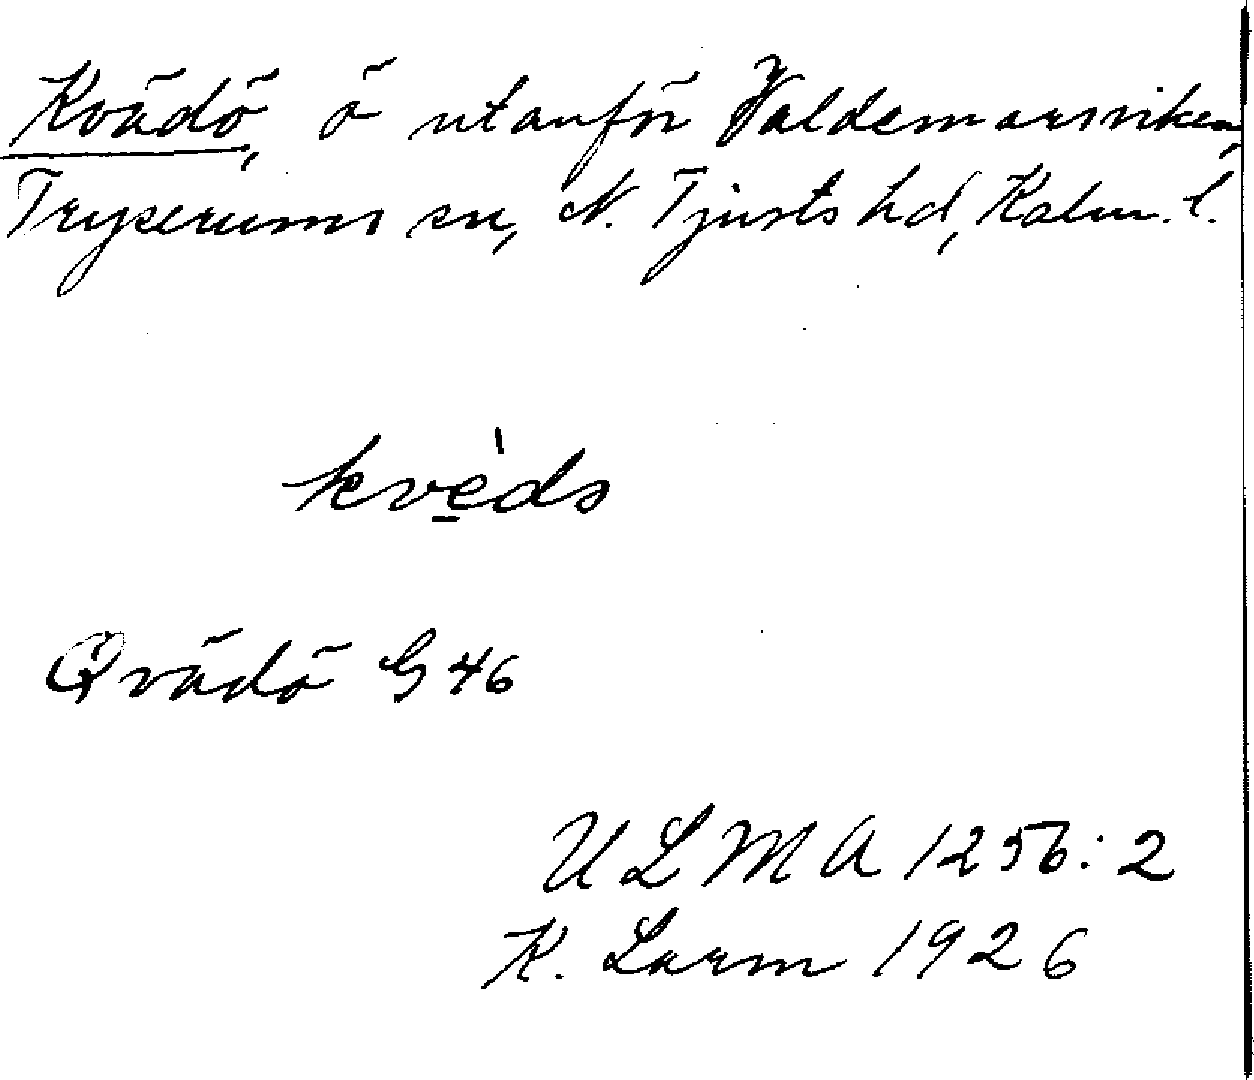 Kvädö, ö utanför Valdemarsviken,
Tryserums sn, N. Tjusts hd, Kalm. l.
kvèdo
Qvädö G 46
ULMA 1256:2
K. Larm 1926